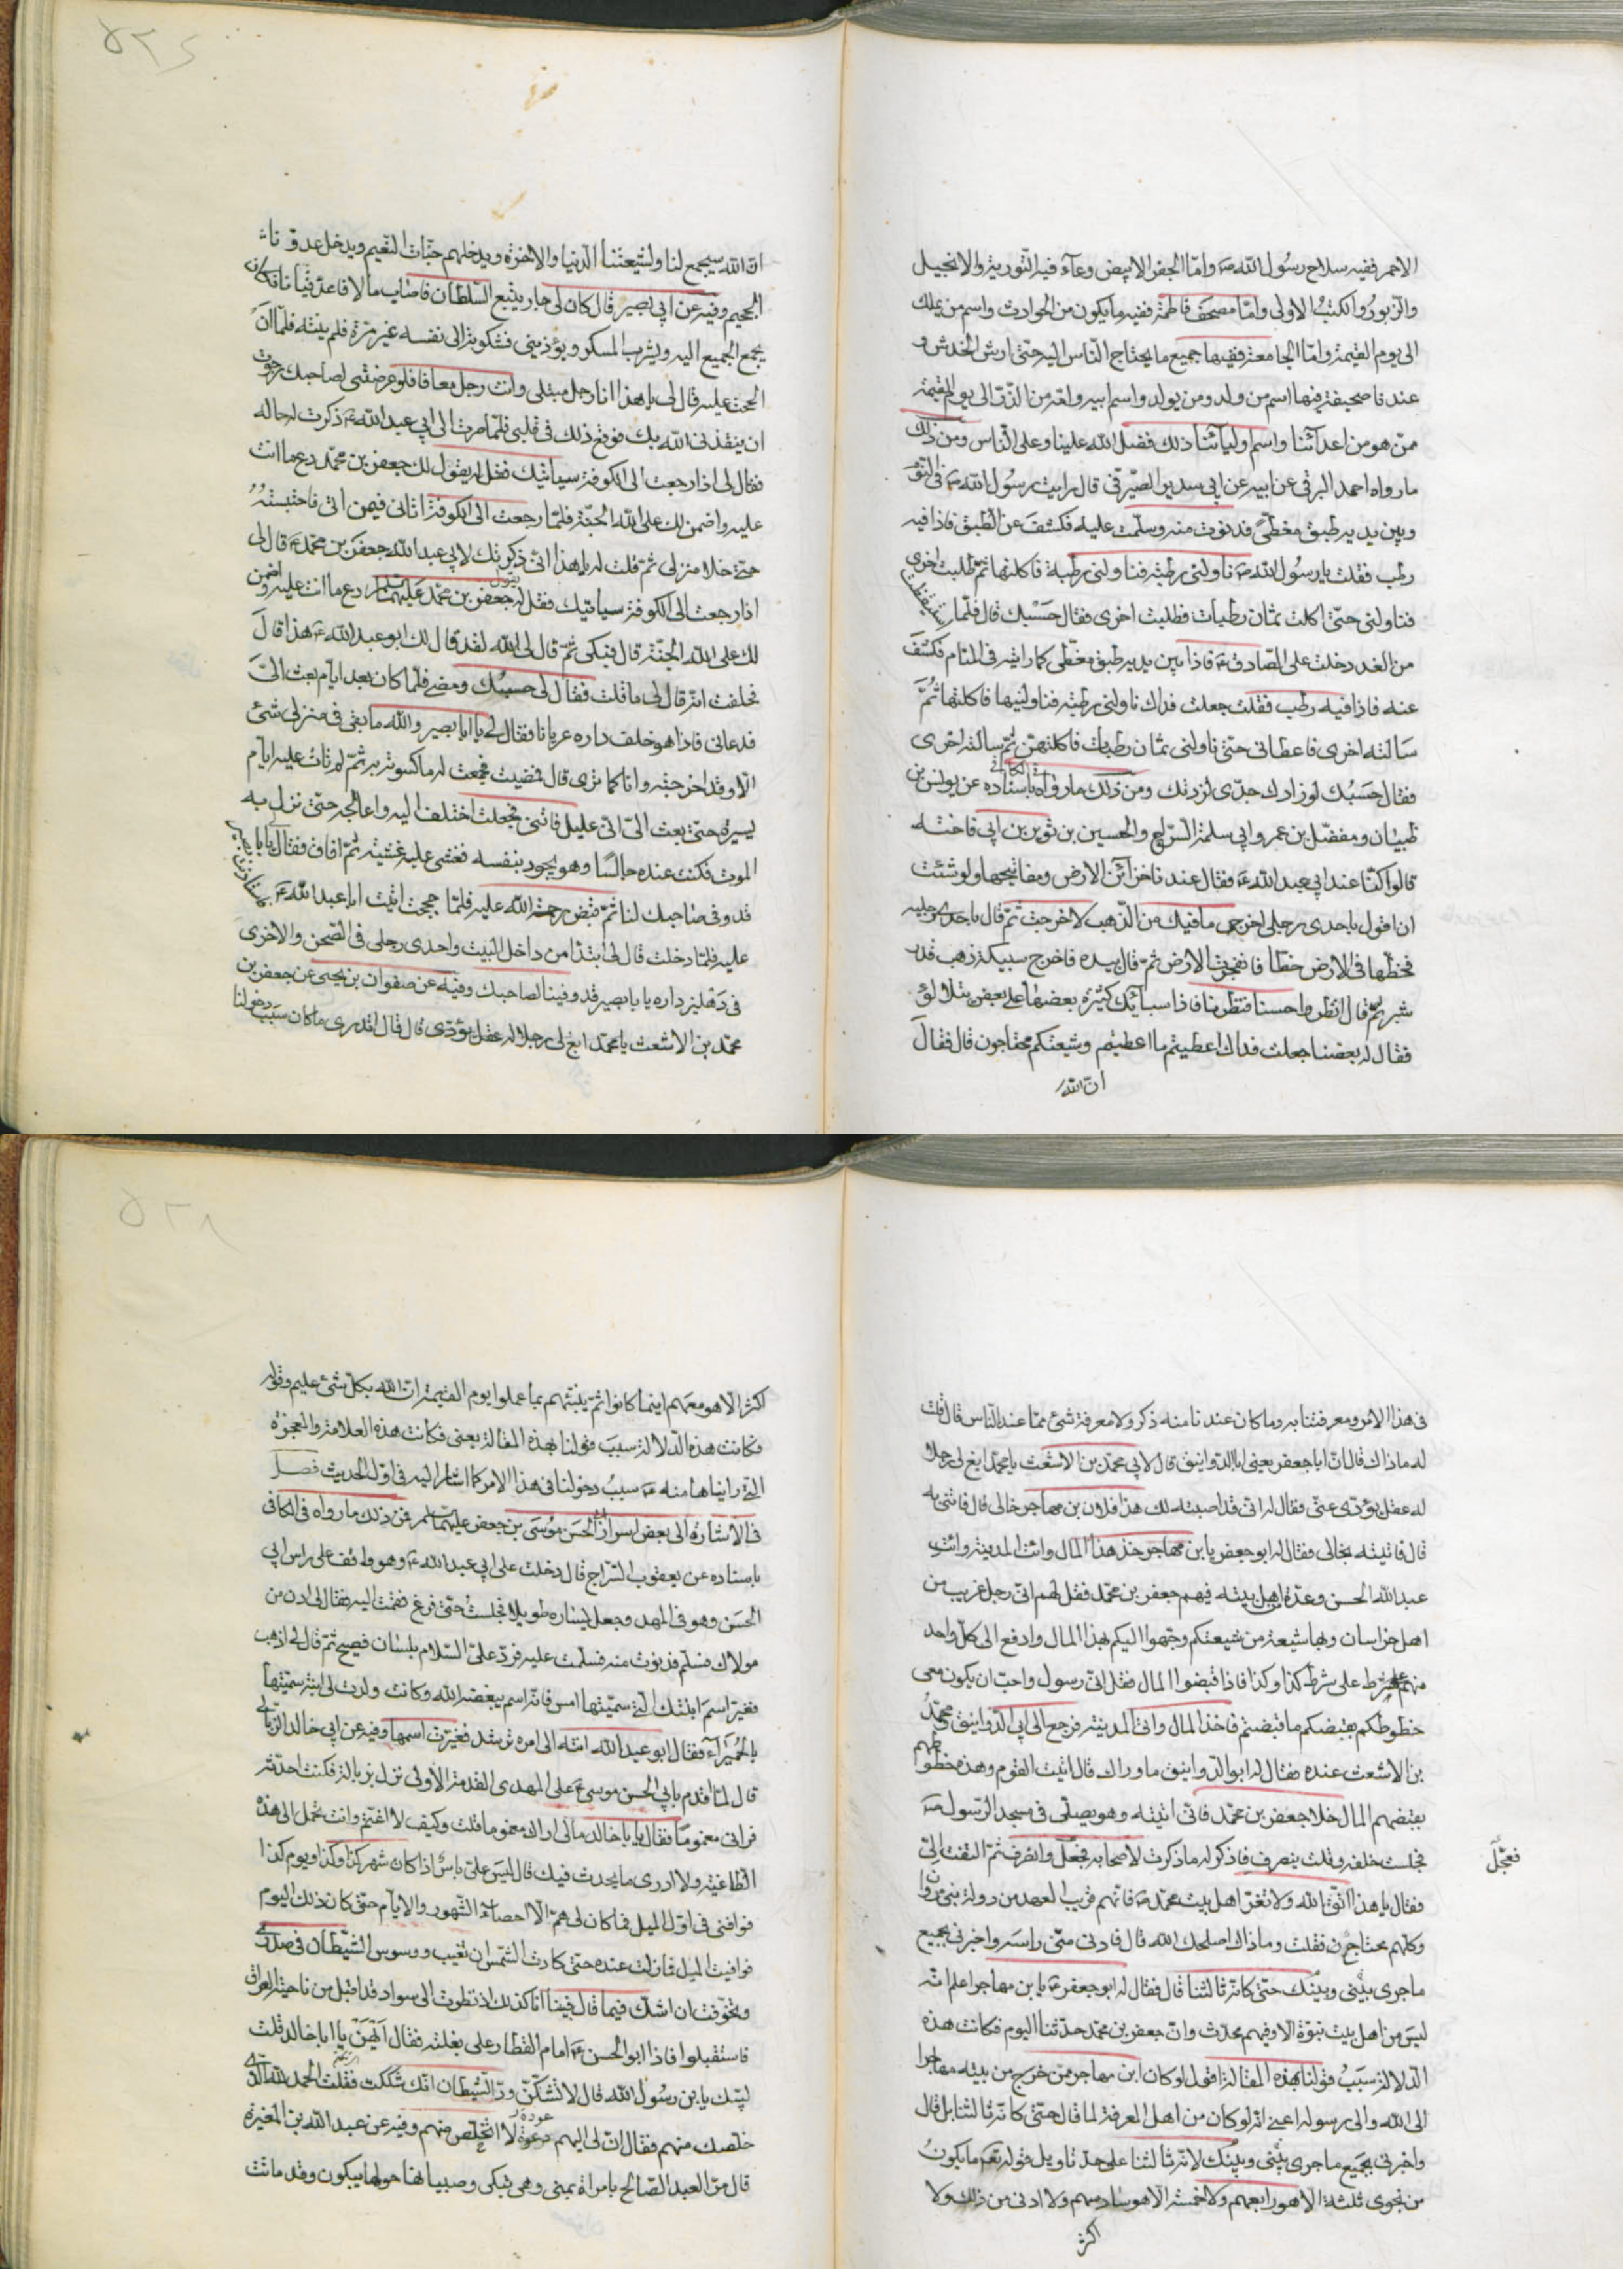 الاحمر ففيه سلاح رسول الله ص واما الجفر الابيض وعاء فيه التورية والانجيل
والزبور والكتب الاولى واما مصحف فاطمة ففيه ما يكون من الحوادث واسم من يملك
الى يوم القيمة واما الجامعة ففيها جميع ما يحتاج الناس اليه حتى ارش الخدش و
عندنا صحيفة فيها اسم من ولد ومن يولد واسم ابيه وامه من الذر الى يوم القيمة
ممن هو من اعدائنا واسم اوليائنا ذلك فضل الله علينا وعلى الناس ومن ذلك
ما رواه احمد البرقى عن ابيه عن ابى سدير الصيرفى قال رايت رسول الله ص فى النوم
وبين يديه طبق مغطى فدنوت منه وسلمت عليه فكشف عن الطبق فاذا فيه
رطب فقلت يا رسول الله ص ناولنى رطبة فناولنى رطبة فاكلتها ثم طلبت اخرى
فناولنى حتى اكلت ثمان رطبات فطلبت اخرى فقال حسبك قال فلما استيقظت
من الغد دخلت على الصادق ع فاذا بين يديه طبق مغطى كما رايته فى المنام فكشف
عنه فاذا فيه رطب فقلت جعلت فداك ناولنى رطبة فناولنيها فاكلتها ثم
سالته اخرى فاعطانى حتى ناولنى ثمان رطبات فاكلتهن ثم سالته اخرى
فقال حسبك لو زادك جدى لزدتك ومن ذلك ما رواه فى الكافى باسناده عن يونس بن
ظبيان ومفضل بن عمر وابى سلمة السراج والحسين بن ثوير بن ابى فاخته
قالوا كنا عند ابى عبد الله ع فقال عندنا خزائن الارض ومفاتيحها ولو شئت
ان اقول باحدى رجلى اخرجى ما فيك من الذهب لاخرجت ثم قال باحدى رجليه
فخطها فى الارض خطا فانفجرت الارض ثم قال بيده فاخرج سبيكة ذهب قدر
شبر ثم قال انظروا حسنا فنظرنا فاذا سبائك كثيرة بعضها على بعض يتلألؤ
فقال له بعضنا جعلت فداك اعطيتم ما اعطيتم وشيعتكم محتاجون قال فقال
ان الله
ان الله سيجمع لنا ولشيعتنا الدنيا والاخرة ويدخلهم جنات النعيم ويدخل عدونا
الجحيم وفيه عن ابى بصير قال كان لى جار يتبع السلطان فاصاب مالا فاعد قيانا فكان
يجمع الجميع اليه ويشرب المسكر ويؤذينى فشكوته الى نفسه غير مرة فلم ينته فلما ان
الححت عليه قال لى يا هذا انا رجل مبتلى وانت رجل معافا فلو عرضتنى لصاحبك رجوت
ان ينقذنى الله بك فوقع ذلك فى قلبى فلما صرت الى ابى عبد الله ع ذكرت له حاله
فقال لى اذا رجعت الى الكوفة سياتيك فقل له يقول لك جعفر بن محمد دع ما انت
عليه واضمن لك على الله الجنة فلما رجعت الى الكوفة اتانى فيمن اتى فاحتبسته
حتى خلا منزلى ثم قلت له يا هذا انى ذكرتك لابى عبد الله جعفر بن محمد ع قال لى
اذا رجعت الى الكوفة سياتيك فقل له يقول جعفر بن محمد عليهما السلام دع ما انت عليه واضمن
لك على الله الجنة قال فبكى ثم قال لى الله لقد قال لك ابو عبد الله ع هذا قال
فحلفت انه قال لى ما قلت فقال لى حسبك ومضى فلما كان بعد ايام بعث الى
فدعانى فاذا هو خلف داره عريانا فقال لى يا ابا بصير والله ما بقى فى منزلى شئ
الا وقد اخرجته وانا كما ترى قال فمضيت فجمعت له ما كسوته به ثم لم تات عليه ايام
يسيرة حتى بعث الى انى عليل فاتنى فجعلت اختلف اليه واعالجه حتى نزل به
الموت فكنت عنده جالسا وهو يجود بنفسه فغشى عليه غشية ثم افاق فقال يا ابا بصير
قد وفى صاحبك لنا ثم قبض رحمة الله عليه فلما حججت اتيت ابا عبد الله ع فاستاذنت
عليه فلما دخلت قال لى ابتدا من داخل البيت واحدى رجلى فى الصحن والاخرى
فى دهليز داره يا با بصير قد وفينا لصاحبك وفيه عن صفوان بن يحيى عن جعفر بن
محمد بن الاشعث يا محمد ابغ لى رجلا له عقل يؤدى قال قال اتدرى ما كان سبب دخولنا
فى هذا الامر ومعرفتنا به وما كان عندنا منه ذكر ولا معرفة شئ مما عند الناس قال قلت
له ما ذاك قال ان ابا جعفر يعنى ابا الدوانيق قال لابى محمد بن الاشعث يا محمد ابغ لى رجلا
له عقل يؤدى عنى فقال له انى قد اصبته لك هذا فلان بن مهاجر خالى قال فاتنى به
قال فاتيته بخالى فقال له ابو جعفر يا ابن مهاجر خذ هذا المال وائت المدينة وائت
عبد الله الحسن وعدة اهل بيته فيهم جعفر بن محمد فقل لهم انى رجل غريب من
اهل خراسان وبها شيعة من شيعتكم وجهوا اليكم بهذا المال وادفع الى كل واحد
منهم على شرط كذا وكذا فاذا قبضوا المال فقل انى رسول واحب ان يكون معى
خطوطكم بقبضكم ما قبضتم فاخذ المال واتى المدينة فرجع الى ابى الدوانيق ومحمد
بن الاشعث عنده فقال له ابو الدوانيق ما وراك قال اتيت القوم وهذه خطوطهم
بقبضهم المال خلا جعفر بن محمد فانى اتيته وهو يصلى فى مسجد الرسول ص
فجلست خلفه وقلت ينصرف فاذكر له ما ذكرت لاصحابه فجعل وانصرف ثم التفت الى
فعجل
فقال يا هذا اتق الله ولا تغر اهل بيت محمد ص فانهم قريب العهد من دولة بنى مروان
وكلهم محتاج فقلت وما ذاك اصلحك الله قال فادنى منى راسه واخبرنى بجميع
ما جرى بينى وبينك حتى كانه ثالثنا قال فقال له ابو جعفر ع يا ابن مهاجر اعلم انه
ليس من اهل بيت نبوة الا وفيهم محدث وان جعفر بن محمد حدثنا اليوم فكانت هذه
الدلالة سبب قولنا بهذه المقالة اقول لو كان ابن مهاجر ممن خرج من بيته مهاجرا
الى الله والى رسوله اعنى انه لو كان من اهل المعرفة لما قال حتى كانه ثالثنا بل قال
واخبرنى بجميع ما جرى بينى وبينك لانه ثالثنا على حد تاويل قوله تعم ما يكون
من نجوى ثلثة الا هو رابعهم ولا خمسة الا هو سادسهم ولا ادنى من ذلك ولا
اكثر
اكثر الا هو معهم اينما كانوا ثم ينبئهم بما عملوا يوم القيمة ان الله بكل شئ عليم وقوله
فكانت هذه الدلالة سبب قولنا بهذه المقالة يعنى فكانت هذه العلامة والمعجزة
التى رايناها منه ع سبب دخولنا فى هذا الامر كما اشار اليه فى اول الحديث فصل
فى الاشارة الى بعض اسرار ابى الحسن موسى بن جعفر عليهما السلم فمن ذلك ما رواه فى الكافى
باسناده عن يعقوب السراج قال دخلت على ابى عبد الله ع وهو واقف على راس ابى
الحسن وهو فى المهد وجعل يساره طويلا فجلست حتى فرغ فقمت اليه فقال لى ادن من
مولاك فسلم فدنوت منه فسلمت عليه فرد على السلام بلسان فصيح ثم قال لى اذهب
فغير اسم ابنتك التى سميتها امس فانه اسم يبغضه الله وكانت ولدت لى ابنة سميتها
بالحميراء فقال ابو عبد الله انته الى امره ترشد فغيرت اسمها وفيه عن ابى خالد الزبالى
قال لما اقدم بابى الحسن موسى ع على المهدى القدمة الاولى نزل زبالة فكنت احدثه
فرانى مغموما فقال يا ابا خالد مالى اراك مغموما قلت وكيف لا اغتم وانت تحمل الى هذه
الطاغية ولا ادرى ما يحدث فيك قال ليس على باس اذا كان شهر كذا وكذا ويوم كذا
فوافنى فى اول الميل فما كان لى هم الا احصاء الشهور والايام حتى كان ذلك اليوم
فوافيت الميل فما زلت عنده حتى كادت الشمس ان تغيب ووسوس الشيطان فى صدرى
وتخوفت ان اشك فيما قال فبينا انا كذلك اذ نظرت الى سواد قد اقبل من ناحية العراق
فاستقبلوا فاذا ابو الحسن ع امام القطار على بغلته فقال ايهن يا ابا خالد قلت
لبيك يا بن رسول الله قال لا تشكن ود الشيطان انك شككت فقلت الحمد لله الذى
خلصك منهم فقال ان لى اليهم عودة لا اتخلص منهم وفيه عن عبد الله بن المغيرة
قال مر العبد الصالح بامراة بمنى وهى تبكى وصبيانها حولها يبكون وقد ماتت